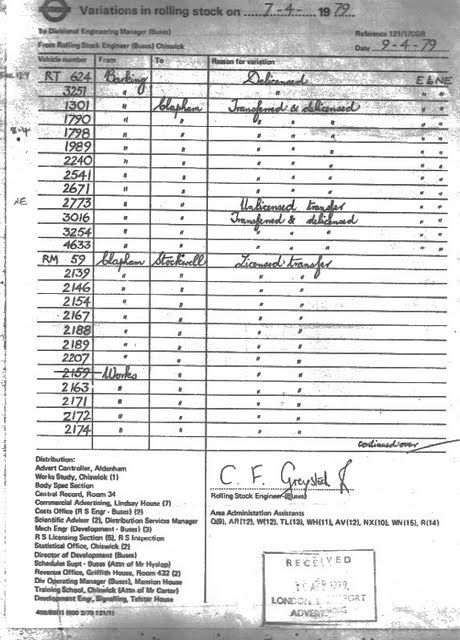 Variations in rolling stock on 7-4- 1979
To Divisional Engineering Manager (Buses) Reference 121/1/CGR
From Rolling Stock Engineer (Buses) Chiswick Date 9-4-79
Vehicle number From To Reason for variation
RT 624 Barking Delicensed E & NE
3251 " " " "
1301 " Clapham Transferred & delicensed " "
1790 " " " " " " "
8-4 1798 " " " " " " "
1989 " " " " " " "
2240 " " " " " " "
2541 " " " " " " "
2671 " " " " " " "
2773 " " Unlicensed transfer " "
3016 " " Transferred & delicensed " "
3254 " " " " " " "
4633 " " " " " " "
RM 59 Clapham Stockwell Licensed transfer
2139 " " " "
2146 " " " "
2154 " " " "
2167 " " " "
2188 " " " "
2189 " " " "
2207 " " " "
2159 Works " " "
2163 " " " "
2171 " " " "
2172 " " " "
2174 " " " "
continued over
Distribution:
Advert Controller, Aldenham
Works Study, Chiswick (1)
Body Spec Section
Central Record, Room 34
Commercial Advertising, Lindsay House (7)
Costs Office (R S Engr - Buses) (2)
Scientific Adviser (2), Distribution Services Manager
Mech Engr (Development - Buses) (3)
R S Licensing Section (5), R S Inspection
Statistical Office, Chiswick (2)
Director of Development (Buses)
Schedules Supt - Buses (Attn of Mr Hyslop)
Revenue Office, Griffith House, Room 432 (2)
Div Operating Manager (Buses), Mansion House
Training School, Chiswick (Attn of Mr Carter)
Development Engr, Signalling, Telstar House
C. F. Greysted
Rolling Stock Engineer (Buses)
Area Administation Assistants
Q(9), AR(12), W(12), TL(13), WH(11), AV(12), NX(10), WN(15), R(14)
RECEIVED
APR 1979
LONDON
ADVERT